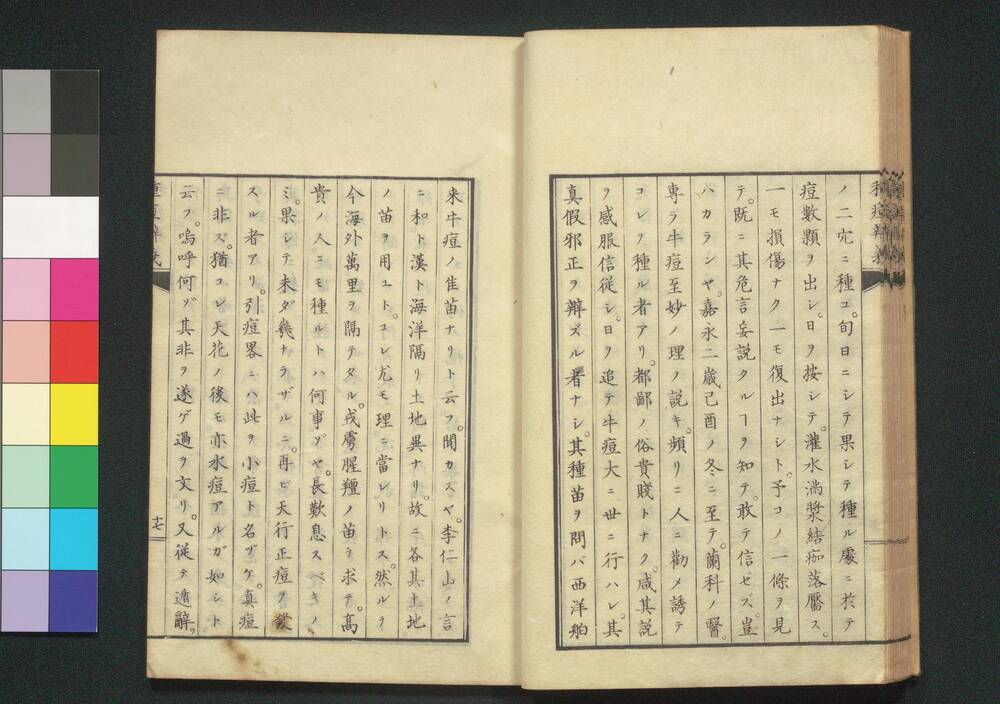 ノ二穴ニ種ユ。旬日ニシテ果シテ種ル處ニ於テ
痘數顆ヲ出シ。日ヲ按シテ。灌水淌漿結痂落靨ス。
一モ損傷ナク一モ復出ナシト。予コノ一條ヲ見
テ。既ニ其危言妄説タルヿヲ知テ。敢テ信セズ。豈
ハカランヤ。嘉永二歳己酉ノ冬ニ至テ。蘭科ノ醫。
專ラ牛痘至妙ノ理ノ説キ。頻リニ人ニ勸メ誘テ
コレヲ種ル者アリ。都鄙ノ俗貴賤トナク。咸其説
ヲ感服信從シ。日ヲ追テ牛痘大ニ世ニ行ハレ。其
真假邪正ヲ辨ズル者ナシ。其種苗ヲ問バ西洋舶
来牛痘ノ佳苗ナリト云フ。聞カスヤ。李仁山ノ言
ニ和ト漢ト海洋隔リ土地異ナリ。故ニ各其土地
ノ苗ヲ用ユト。コレ尤モ理ニ當レリトス。然ルヲ
今海外萬里ヲ隔テタル。戎虜腥羶ノ苗ヲ求テ。高
貴ノ人ニモ種ルトハ何事ゾヤ。長歎息スベキノ
ミ。果シテ未ダ幾ナラザルニ。再ビ天行正痘ヲ發
スル者アリ。引痘畧ニハ此ヲ小痘ト名ヅケ。真痘
ニ非ズ。猶コレ天花ノ後モ亦水痘アルガ如シト
云フ。嗚呼何ゾ其非ヲ遂ゲ過ヲ文リ。又従テ遁辭ヲ
十七